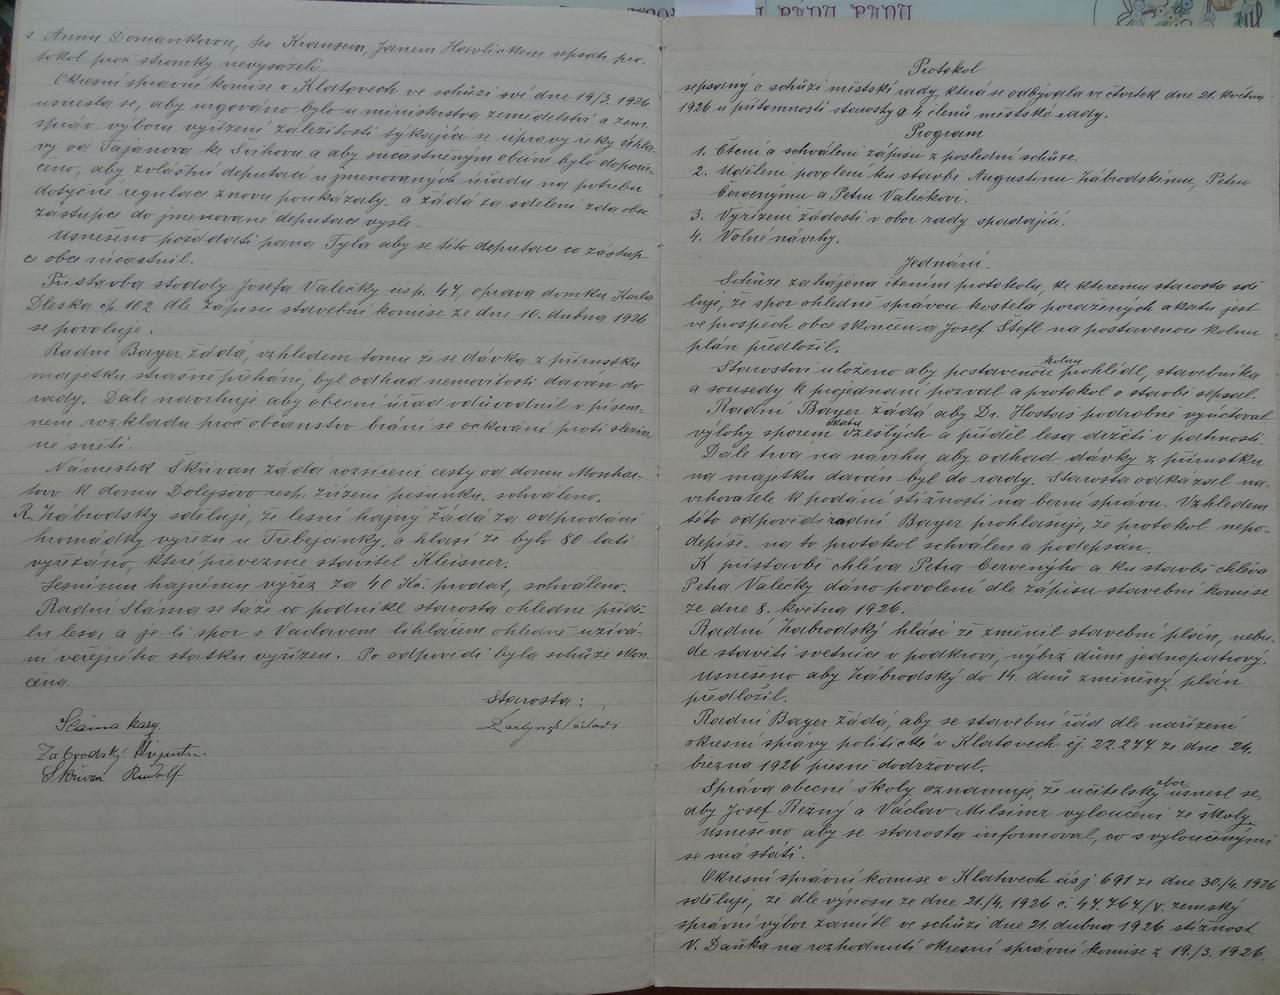 s Annu Domankovou, Leo Krausem, Janem Havlíčkem sepsati pro-
tokol proč stromky nevysázeli.
Okresní správní komise v Klatovech ve schůzi své dne 19/3. 1926
usnesla se, aby urgováno bylo u ministerstva zemědělství a zem.
správ. výboru vyřízení záležitosti týkající se úpravy řeky Úhla-
vy od Tajanova ke Švihovu a aby súčastněným obcím bylo doporu-
čeno, aby zvláštní deputaci u jmenovaných úřadů na potřebu
dotyčné regulace znovu poukázaly. a žádá za sdělení zda obec
zástupce do jmenované deputace vyšle.
Usneseno požádati pana Tyla aby se této deputace co zástup-
ce obce súčastnil.
Přístavba stodoly Josefa Valečky čís p. 47, oprava domku Karla
Dleska čp. 102 dle zápisu stavební komise ze dne 10. dubna 1926
se povoluje.
Radní Bayer žádá, vzhledem tomu že se dávka z přírustku
majetku strašně přehání, byl odhad nemovitostí dáván do
rady. Dále navrhuje aby obecní úřad odůvodnil v písem-
ném rozkladu proč občanstvo brání se očkování proti slezin-
né sněti.
Náměstek Skřivan žádá rozšíření cesty od domu Monhar-
tova k domu Dolejšovo resp. zřízení pěšinky, schváleno.
R. Zábrodský sděluje, že lesní hajný žádá za odprodání
hromádky výřezu u Třebejčinky, a hlásí že bylo 80 latí
vyřezáno, které převezme stavitel Kleisner.
Lesnímu hajnému výřez za 40 Kč. prodat, schváleno.
Radní Sláma se táže co podnikl starosta ohledně přídě-
lu lesa, a je-li spor s Václavem Cihlářem ohledně užívá-
ní veřejného statku vyřízen. Po odpovědi byla schůze skon-
čena.
Starosta:
Sláma Karg.
Zábrodský August.
Skřivan Rudolf
Protokol
sepsaný o schůzi městské rady, která se odbývala ve čtvrtek dne 21. května
1926 u přítomnosti starosty a 4 členů městské rady.
Program
1. Čtení a schválení zápisu z poslední schůze.
2. Udělení povolení ku stavbě Augustinu Zábrodskému, Petru
Červenýmu a Petru Valečkovi.
3. Vyřízení žádostí v obor rady spadající.
4. Volné návrhy.
Jednání.
Schůze zahájena čtením protokolu, ke kterému starosta sdě-
luje, že spor ohledně správou kostela poražených akátů jest
ve prospěch obce skončen a Josef Štefl na postavenou kolnu
plán předložil.
Starostovi uloženo aby postavenou kolnu prohlédl, stavebníka
a sousedy k projednání pozval a protokol o stavbě sepsal.
Radní Bayer žádá aby Dr. Hostaš podrobně vyúčtoval
výlohy sporem akátů vzešlých a příděl lesa držeti v patrnosti.
Dále trvá na návrhu, aby odhad dávky z přírustku
na majetku dáván byl do rady. Starosta odkázal na-
vrhovatele k podání stížnosti na berní správu. Vzhledem
této odpovědi radní Bayer prohlašuje, že protokol nepo-
depíše. na to protokol schválen a podepsán.
K přístavbě chléva Petra Červenýho a ku stavbě chléva
Petra Valečky dáno povolení dle zápisu stavební komise
ze dne 8. května 1926.
Radní Zábrodský hlásí že změnil stavební plán, nebu-
de stavěti světnice v podkroví, nýbrž dům jednopatrový.
Usneseno aby Zábrodský do 14. dnů změněný plán
předložil.
Radní Bayer žádá, aby se stavební řád dle nařízení
okresní správy politické v Klatovech čj. 22.277. ze dne 24.
března 1926 přesně dodržoval.
Správa obecné školy oznamuje, že učitelský sbor usnesl se,
aby Josef Řežný a Václav Milsimr vyloučeni ze školy.
Usneseno aby se starosta informoval, co s vyloučenými
se má státi.
Okresní správní komise v Klatovech čís j. 691 ze dne 30./4. 1926
sděluje, že dle výnosu ze dne 21./4. 1926 č. 47.767/V. zemský
správní výbor zamítl ve schůzi dne 21. dubna 1926 stížnost
V. Daňka na rozhodnutí okresní správní komise z 19./3. 1926.